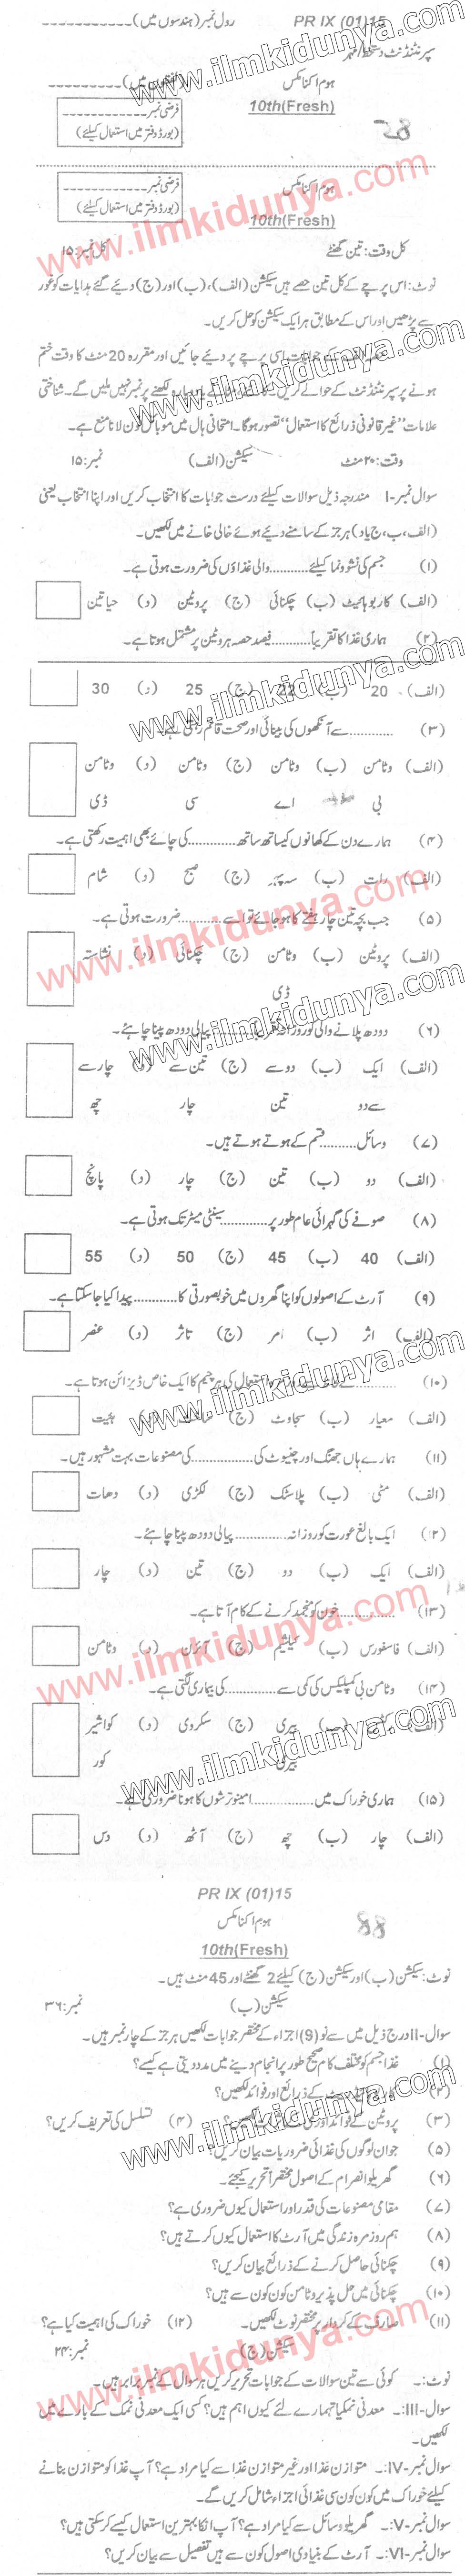 PR IX (01)15 رول نمبر (ہندسوں میں)
سپرنٹنڈنٹ دستخط/مہر
ہوم اکنامکس
10th(Fresh)
85
فرضی نمبر
(بورڈ دفتر میں استعمال کیلئے)
ہوم اکنامکس
10th(Fresh)
فرضی نمبر
(بورڈ دفتر میں استعمال کیلئے)
کل وقت: تین گھنٹے کل نمبر: ۱۵
نوٹ: اس پرچے کے کل تین حصے ہیں سیکشن (الف)، (ب) اور (ج) دیئے گئے ہدایات کو غور
سے پڑھیں اور اس کے مطابق ہر ایک سیکشن کو حل کریں۔
کے جوابات اسی پرچے پر دیئے جائیں اور مقررہ 20 منٹ کا وقت ختم
ہونے پر سپرنٹنڈنٹ کے حوالے کریں۔ دوبارہ لکھنے پر نمبر نہیں ملیں گے۔ شناختی
علامات "غیر قانونی ذرائع کا استعمال" تصور ہوگا۔ امتحانی ہال میں موبائل فون لانا منع ہے۔
وقت: ۲۰ منٹ سیکشن (الف) نمبر: ۱۵
سوال نمبر-I مندرجہ ذیل سوالات کیلئے درست جوابات کا انتخاب کریں اور اپنا انتخاب یعنی
(الف، ب، ج یا د) ہر جز کے سامنے دیئے ہوئے خالی خانے میں لکھیں۔
(۱) جسم کی نشوونما کیلئے ........... والی غذاؤں کی ضرورت ہوتی ہے۔
(الف) کاربوہائیڈریٹ (ب) چکنائی (ج) پروٹین (د) حیاتین
(۲) ہماری غذا کا تقریباً ........... فیصد حصہ پروٹین پر مشتمل ہوتا ہے۔
(الف) 20 (ب) 22 (ج) 25 (د) 30
(۳) ........... سے آنکھوں کی بینائی اور صحت قائم رہتی ہے۔
(الف) وٹامن بی (ب) وٹامن اے (ج) وٹامن سی (د) وٹامن ڈی
(۴) ہمارے دن کے کھانوں کیساتھ ساتھ ........... کی چائے بھی اہمیت رکھتی ہے۔
(الف) رات (ب) سہ پہر (ج) صبح (د) شام
(۵) جب بچہ تین چار ہفتے کا ہو جائے تو اسے ........... ضرورت ہوتی ہے۔
(الف) پروٹین (ب) وٹامن ڈی (ج) چکنائی (د) نشاستہ
(۶) دودھ پلانے والی کو روزانہ تقریباً ........... پیالی دودھ پینا چاہئے۔
(الف) ایک سے دو (ب) دو سے تین (ج) تین سے چار (د) چار سے چھ
(۷) وسائل ........... قسم کے ہوتے ہوتے ہیں۔
(الف) دو (ب) تین (ج) چار (د) پانچ
(۸) صوفے کی گہرائی عام طور پر ........... سینٹی میٹر تک ہوتی ہے۔
(الف) 40 (ب) 45 (ج) 50 (د) 55
(۹) آرٹ کے اصولوں کو اپنا گھروں میں خوبصورتی کا ........... پیدا کیا جا سکتا ہے۔
(الف) اثر (ب) امر (ج) تاثر (د) عنصر
(۱۰) ........... استعمال کی ہر چیز کا ایک خاص ڈیزائن ہوتا ہے۔
(الف) معیار (ب) سجاوٹ (ج) (د) ہیئت
(۱۱) ہمارے ہاں جھنگ اور چنیوٹ کی ........... کی مصنوعات بہت مشہور ہیں۔
(الف) مٹی (ب) پلاسٹک (ج) لکڑی (د) دھات
(۱۲) ایک بالغ عورت کو روزانہ ........... پیالی دودھ پینا چاہئے۔
(الف) ایک (ب) دو (ج) تین (د) چار
(۱۳) ........... خون کو منجمد کرنے کے کام آتا ہے۔
(الف) فاسفورس (ب) کیلشیم (ج) آئرن (د) وٹامن
(۱۴) وٹامن بی کمپلیکس کی کمی سے ........... کی بیماری لگتی ہے۔
(الف) (ب) بیری بیری (ج) سکروی (د) کواشیر کور
(۱۵) ہماری خوراک میں ........... امینو ترشوں کا ہونا ضروری ہے۔
(الف) چار (ب) چھ (ج) آٹھ (د) دس
PR IX (01)15
ہوم اکنامکس
88
10th(Fresh)
نوٹ: سیکشن (ب) اور سیکشن (ج) کیلئے 2 گھنٹے اور 45 منٹ ہیں۔
سیکشن (ب) نمبر: ۳۶
سوال-II درج ذیل میں سے نو (9) اجزاء کے مختصر جوابات لکھیں ہر جز کے چار نمبر ہیں۔
(۱) غذا جسم کو مختلف کام صحیح طور پر انجام دینے میں مدد دیتی ہے کیسے؟
(۲) کے ذرائع اور فوائد لکھیں؟
(۳) پروٹین کے فوائد اور (۴) تسلسل کی تعریف کریں؟
(۵) جوان لوگوں کی غذائی ضروریات بیان کریں؟
(۶) گھریلو انصرام کے اصول مختصراً تحریر کیجئے۔
(۷) مقامی مصنوعات کی قدر اور استعمال کیوں ضروری ہے؟
(۸) ہم روزمرہ زندگی میں آرٹ کا استعمال کیوں کرتے ہیں؟
(۹) چکنائی حاصل کرنے کے ذرائع بیان کریں؟
(۱۰) چکنائی میں حل پذیر وٹامن کون کون سے ہیں؟
(۱۱) صارف کے کردار پر مختصر نوٹ لکھیں۔ (۱۲) خوراک کی اہمیت کیا ہے؟
سیکشن (ج) نمبر: ۲۴
نوٹ:۔ کوئی سے تین سوالات کے جوابات تحریر کریں ہر سوال کے نمبر برابر ہیں۔
سوال-III:۔ معدنی نمکیات ہمارے لئے کیوں اہم ہیں؟ کسی ایک معدنی نمک کے بارے میں
لکھیں۔
سوال نمبر-IV:۔ متوازن غذا اور غیر متوازن غذا سے کیا مراد ہے؟ آپ غذا کو متوازن بنانے
کیلئے خوراک میں کون کون سی غذائی اجزاء شامل کریں گے۔
سوال نمبر-V:۔ گھریلو وسائل سے کیا مراد ہے؟ آپ انکا بہترین استعمال کیسے کر سکتی ہیں؟
سوال نمبر-VI:۔ آرٹ کے بنیادی اصول کون سے ہیں تفصیل سے بیان کریں؟
www.ilmkidunya.com